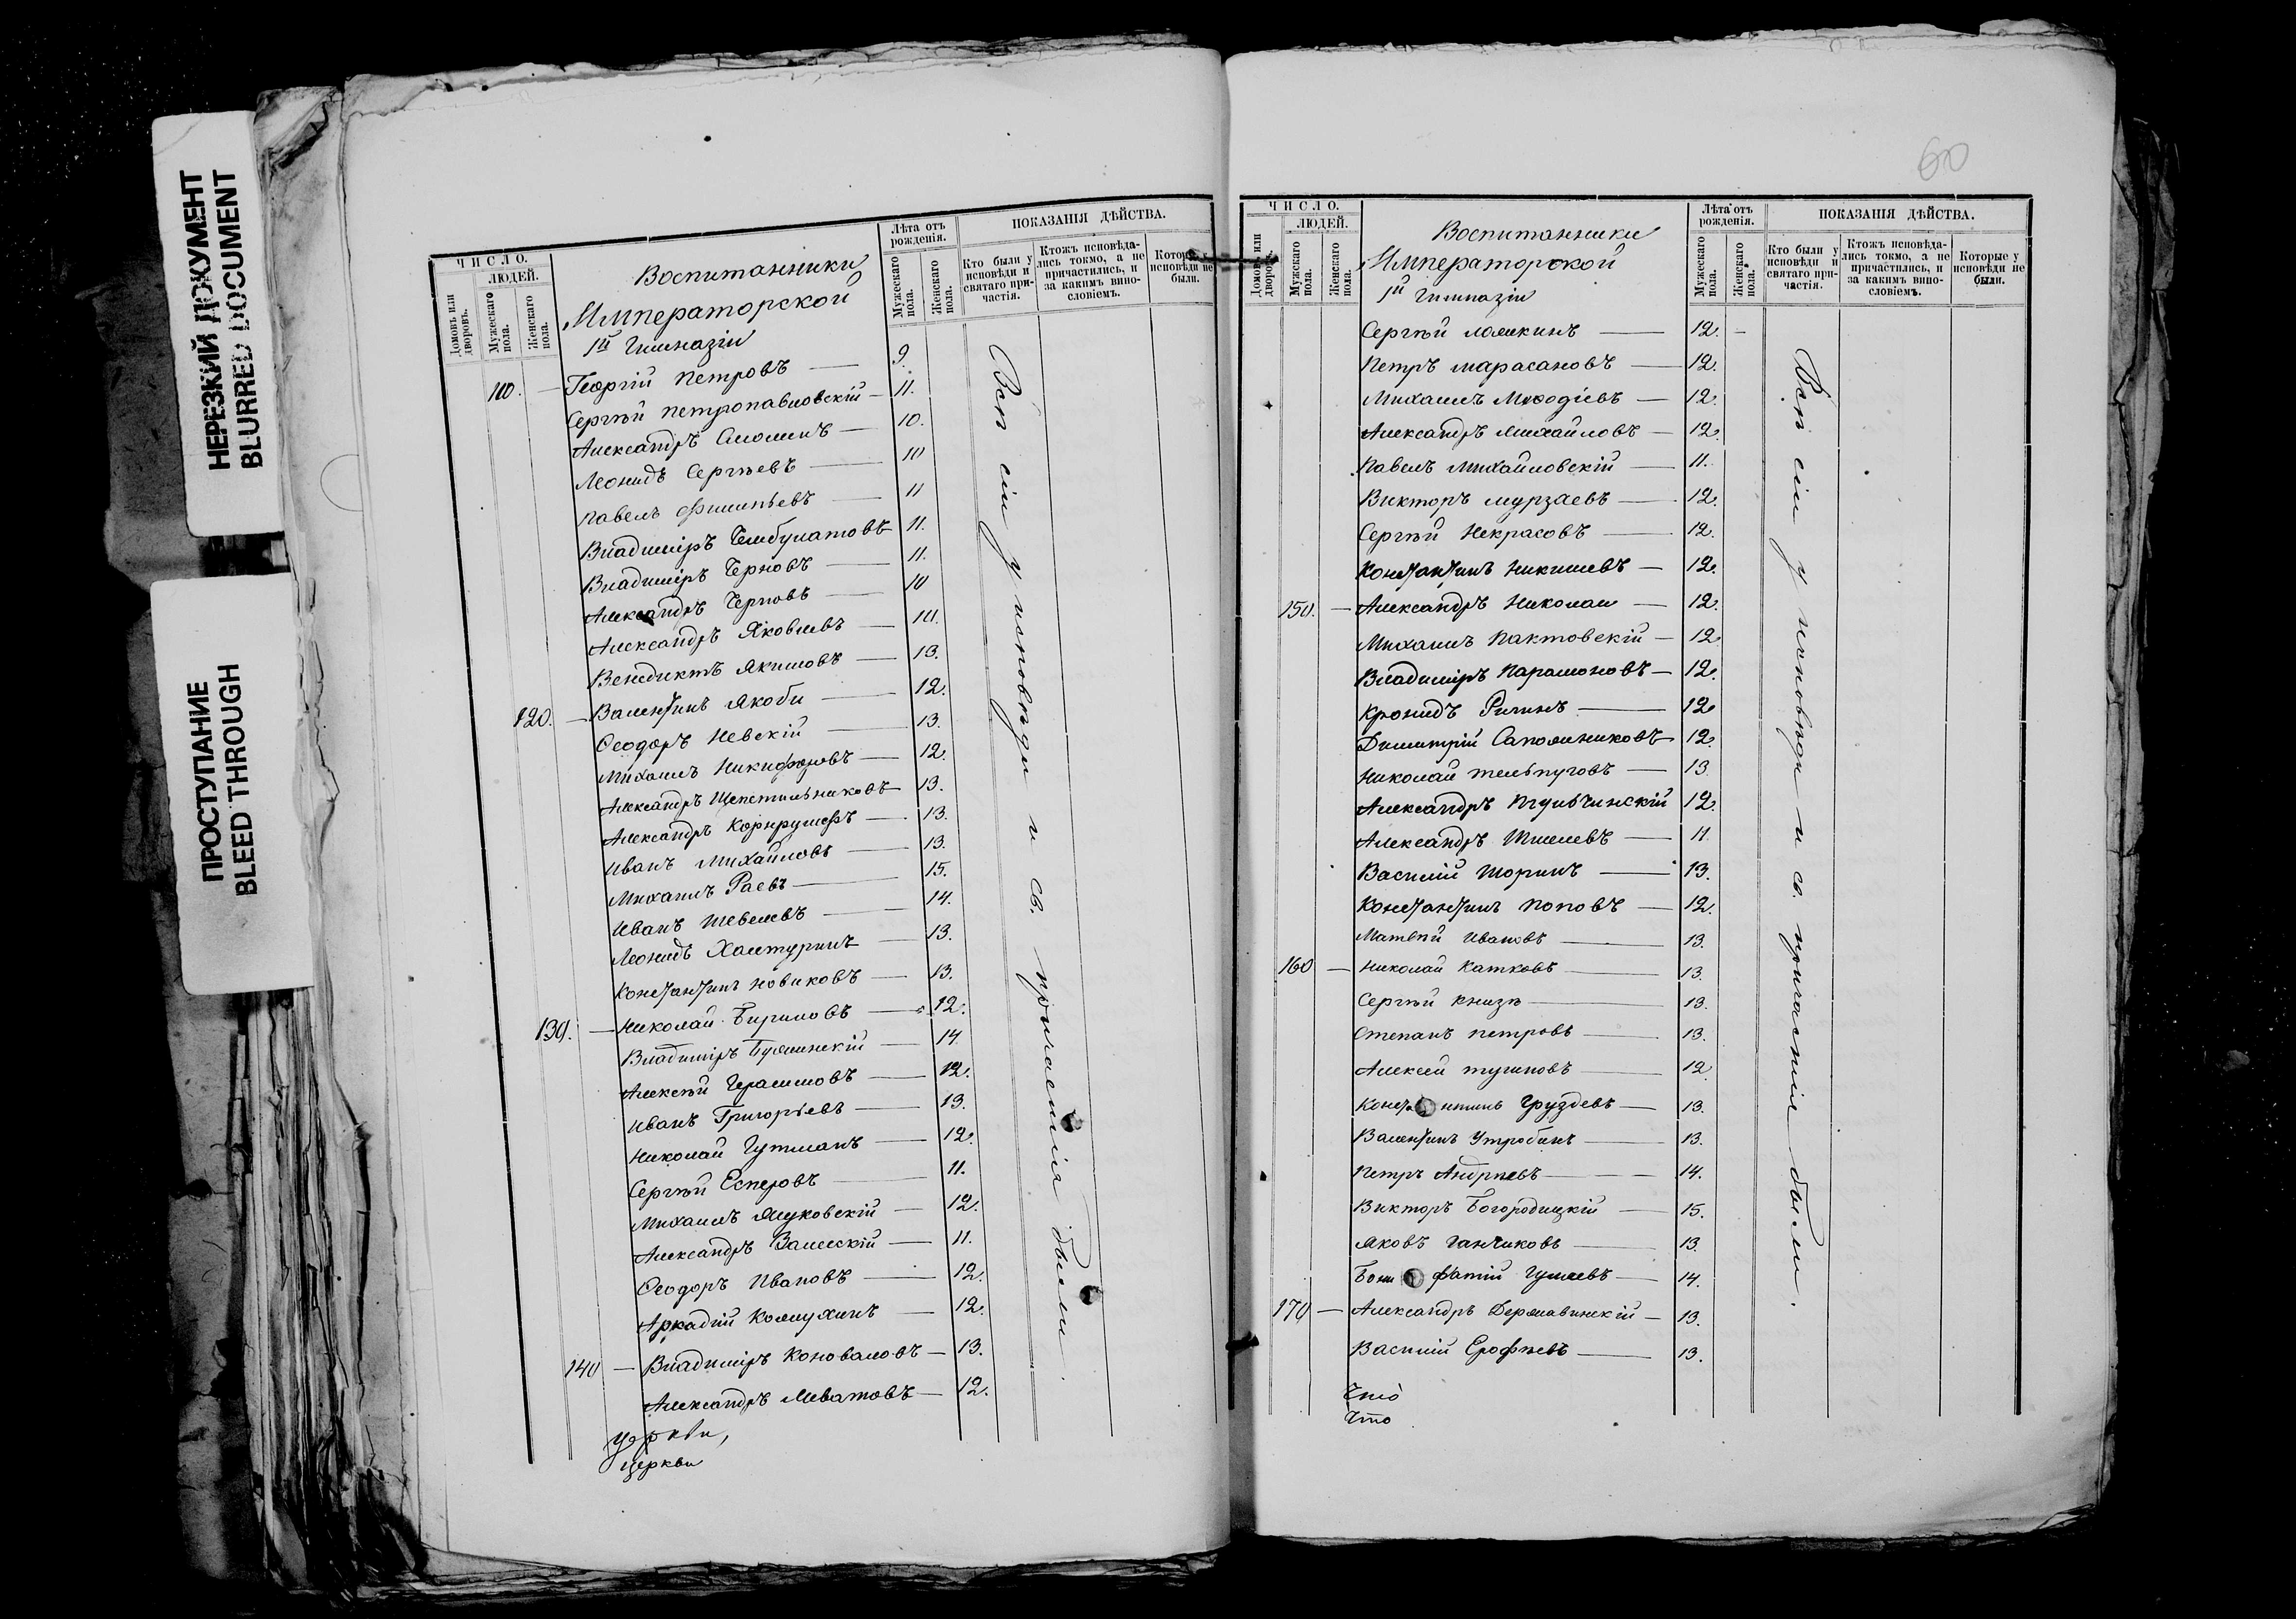 НЕРЕЗКИЙ ДОКУМЕНТ
BLURRED DOCUMENT
ПРОСТУПАНИЕ
BLEED THROUGH
ЧИСЛО.
ЛЮДЕЙ.
Домовъ или дворовъ.
Мужескаго пола.
Женскаго пола.
Воспитанники
Императорской
1й Гимназіи
Лѣта отъ рожденія.
Мужескаго пола.
Женскаго пола.
ПОКАЗАНІЯ ДѢЙСТВА.
Кто были у исповѣди и святаго причастія.
Ктожъ исповѣдались токмо, а не причастились, и за какимъ винословіемъ.
Которые у исповѣди не были.
110. — Георгій Петровъ — 9.
Сергѣй Петропавловскій — 11.
Александръ Смолинъ — 10.
Леонидъ Сергѣевъ — 10
Павелъ Филипьевъ — 11
Владиміръ Чембулатовъ 11.
Владиміръ Черновъ — 11.
Александръ Черновъ — 10
Александръ Яковлевъ — 10.
Венедиктъ Якимовъ — 13.
120. — Валентинъ Якоби — 12.
Ѳеодоръ Невскій — 13.
Михаилъ Никифоровъ — 12.
Александръ Щепетильниковъ 13.
Александръ — 13.
Иванъ Михайловъ — 13.
Михаилъ Раевъ — 15.
Иванъ Шевелевъ — 14.
Леонидъ Халтуринъ — 13.
Константинъ Новиковъ — 13.
130. — Николай Бириловъ — 12.
Владиміръ — 14
Алексѣй Герасимовъ — 12.
Иванъ Григорьевъ — 13.
Николай Гутманъ — 12.
Сергѣй Есперовъ — 11.
Михаилъ Жуковскій — 12.
Александръ Залесскій — 11.
Ѳеодоръ Ивановъ — 12.
Аркадій Кожухинъ — 12.
140 — Владиміръ Коноваловъ — 13.
Александръ Леватовъ — 12.
Всѣ сіи у исповѣди и св. причастія были.
церкви,
церкви
60
ЧИСЛО.
ЛЮДЕЙ.
Домовъ или дворовъ.
Мужскаго пола.
Женскаго пола.
Воспитанники
Императорской
1й Гимназіи
Лѣта отъ рожденія.
Мужескаго пола.
Женскаго пола.
ПОКАЗАНІЯ ДѢЙСТВА.
Кто были у исповѣди и святаго причастія.
Ктожъ исповѣдались токмо, а не причастились, и за какимъ винословіемъ.
Которые у исповѣди не были.
Сергѣй Ложкинъ — 12. —
Петръ Марасановъ — 12.
Михаилъ Меѳодіевъ — 12.
Александръ Михайловъ — 12.
Павелъ Михайловскій — 11.
Викторъ Мурзаевъ — 12.
Сергѣй Некрасовъ — 12.
Константинъ Никишевъ — 12.
150. — Александръ Николаи — 12.
Михаилъ Пактовскій — 12
Владиміръ Парамоновъ — 12.
Кронидъ — 12
Димитрій Сапожниковъ 12.
Николай Тельпуговъ — 13.
Александръ Тульчинскій 12.
Александръ Шмелевъ — 11
Василій Шоринъ — 13.
Константинъ Поповъ — 12.
Матвѣй Ивановъ — 13.
160 — Николай Катковъ — 13.
Сергѣй Книзе — 13.
Степанъ Петровъ — 13.
Алексѣй Тугановъ — 12.
Константинъ Груздевъ — 13.
Валентинъ Утробинъ — 13.
Петръ Андреевъ — 14.
Викторъ Богородицкій — 15.
Яковъ Ганчиковъ — 13.
Бонифатій — 14.
170 — Александръ Державинскій — 13.
Василій Ерофѣевъ — 13.
Всѣ сіи у исповѣди и св. причастія были.
Что
Что